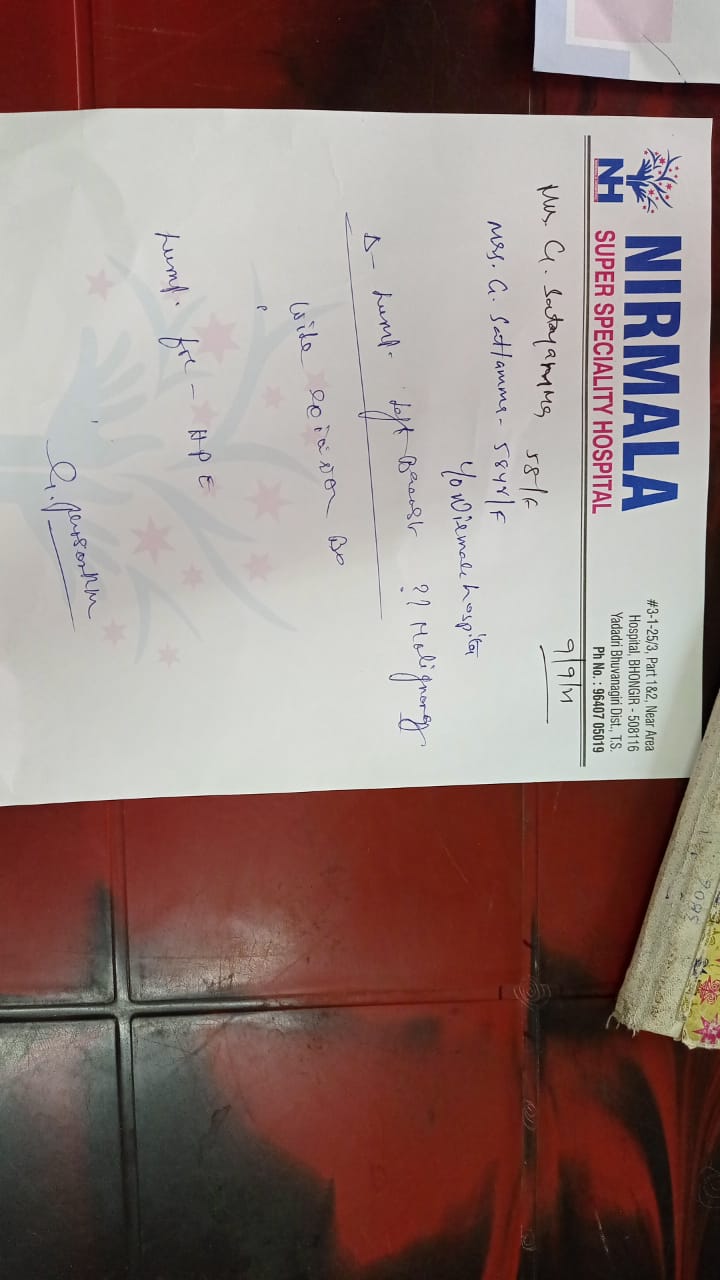 NIRMALA
SUPER SPECIALITY HOSPITAL
NH
#3-1-25/3, Part 1&2, Near Area
Hospital, BHONGIR - 508116
Yadadri Bhuvanagiri Dist., T.S.
Ph No. : 96407 05019
9/9/21
Mrs. G. Satayamma 58/F
Mrs. G. Sattamma - 58yr/F
Y/o Nirmala hospital
Δ- Lump. Left Breast ?? Malignancy
Wide Excision
Lump. for - HPE